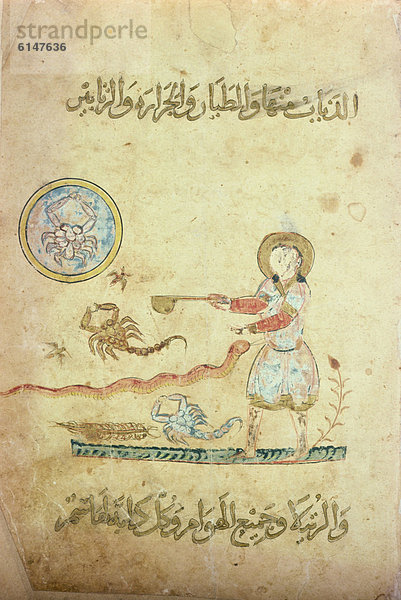 6147636
الذباب منها والطيار والجراره والزنابير
والرتيلا وجميع الهوام وكل دابة لها سم